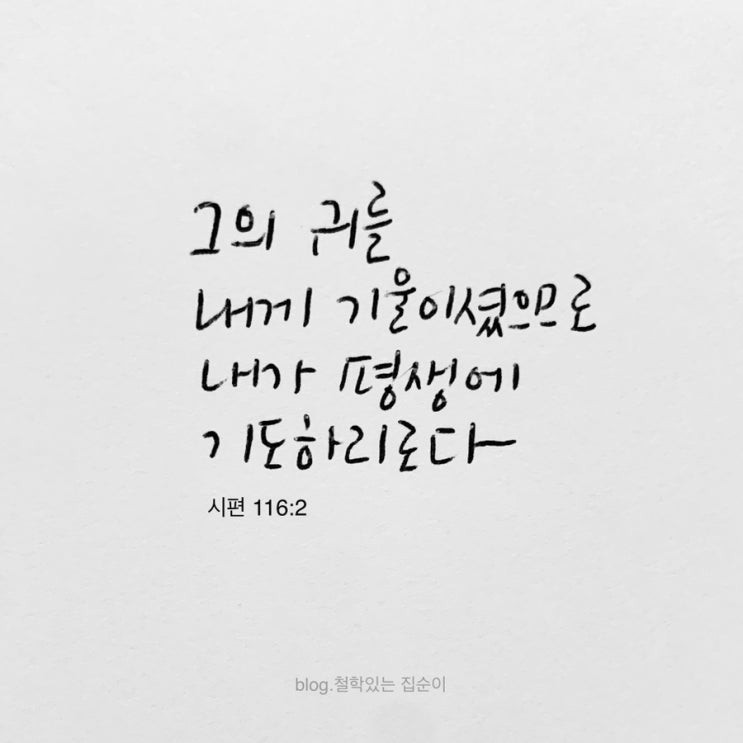 그의 귀를
내게 기울이셨으므로
내가 평생에
기도하리로다
시편 116:2
blog.철학있는 집순이